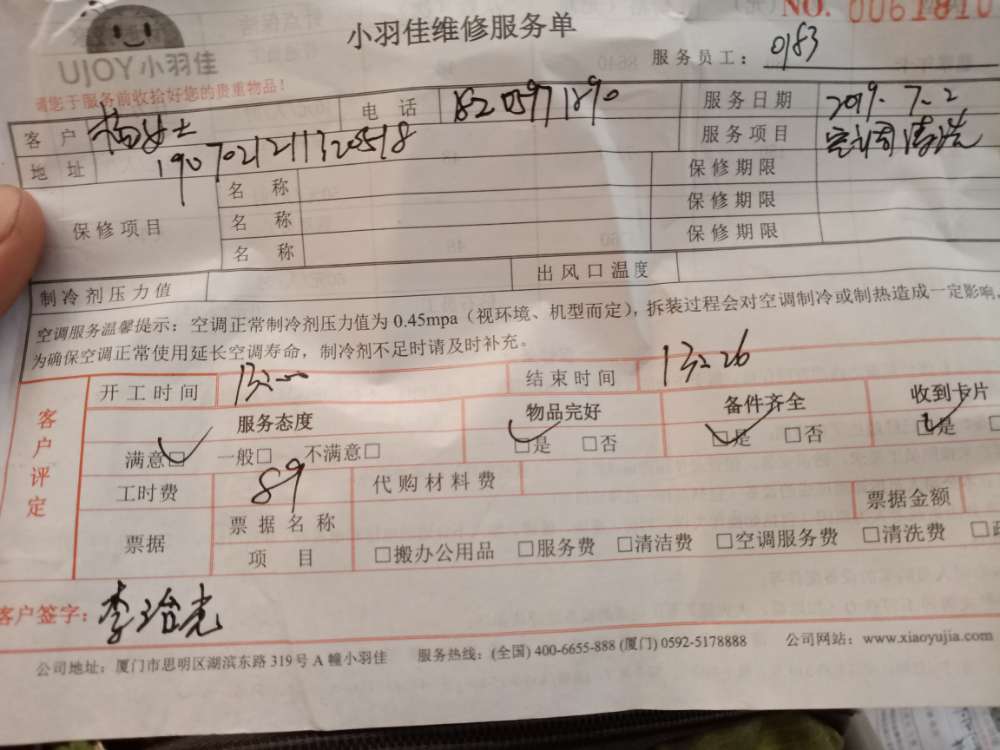 小羽佳维修服务单
NO. 0061810
UJOY小羽佳
服务员工: 0183
请您于服务前收拾好您的贵重物品!
客户 杨女士 电话 18205971890 服务日期 2019.7.2
地址 190702121113205518 服务项目 空调清洗
保修项目 名称 保修期限
名称 保修期限
名称 保修期限
制冷剂压力值 出风口温度
空调服务温馨提示:空调正常制冷剂压力值为0.45mpa(视环境、机型而定),拆装过程会对空调制冷或制热造成一定影响,
为确保空调正常使用延长空调寿命,制冷剂不足时请及时补充。
客户评定
开工时间 结束时间 13:26
服务态度 物品完好 备件齐全 收到卡片
满意□ 一般□ 不满意□ □是 □否 □是 □否 □是
工时费 89 代购材料费
票据 票据名称 票据金额
项目 □搬办公用品 □服务费 □清洁费 □空调服务费 □清洗费
客户签字:
公司地址:厦门市思明区湖滨东路319号A幢小羽佳 服务热线:(全国) 400-6655-888 (厦门) 0592-5178888 公司网站:www.xiaoyujia.com